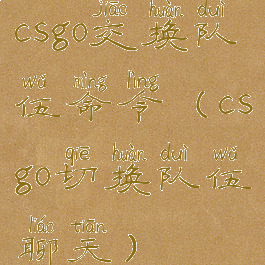 jiāo huàn duì
csgo交换队
wǔ mìng lìng
伍命令（cs
qiē huàn duì wǔ
go切换队伍
liáo tiān
聊天）